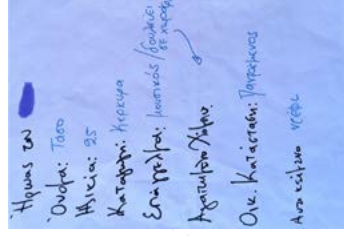 Ήρωας του
Όνομα: Τάσο
Ηλικία: 25
Καταγωγή: Κέρκυρα
Επάγγελμα: μουσικός / δουλεύει
σε
Αγαπημένο Χόμπι:
Οικ. Κατάσταση: Παντρεμένος
Αντικείμενο